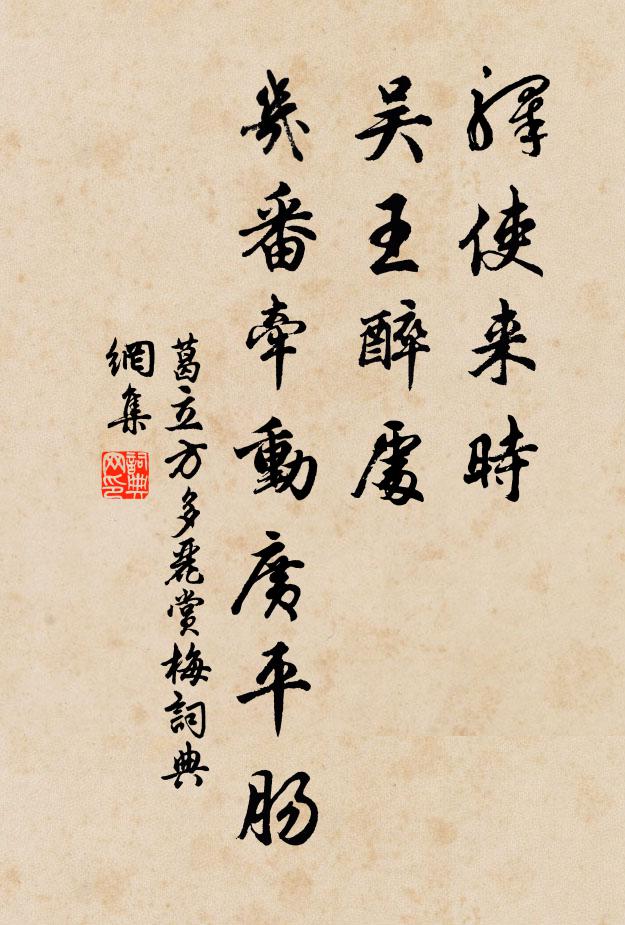 驛使来時
吴王醉處
幾番牵動廣平肠
葛立方多麗賞梅詞典
網集
詞典
网印